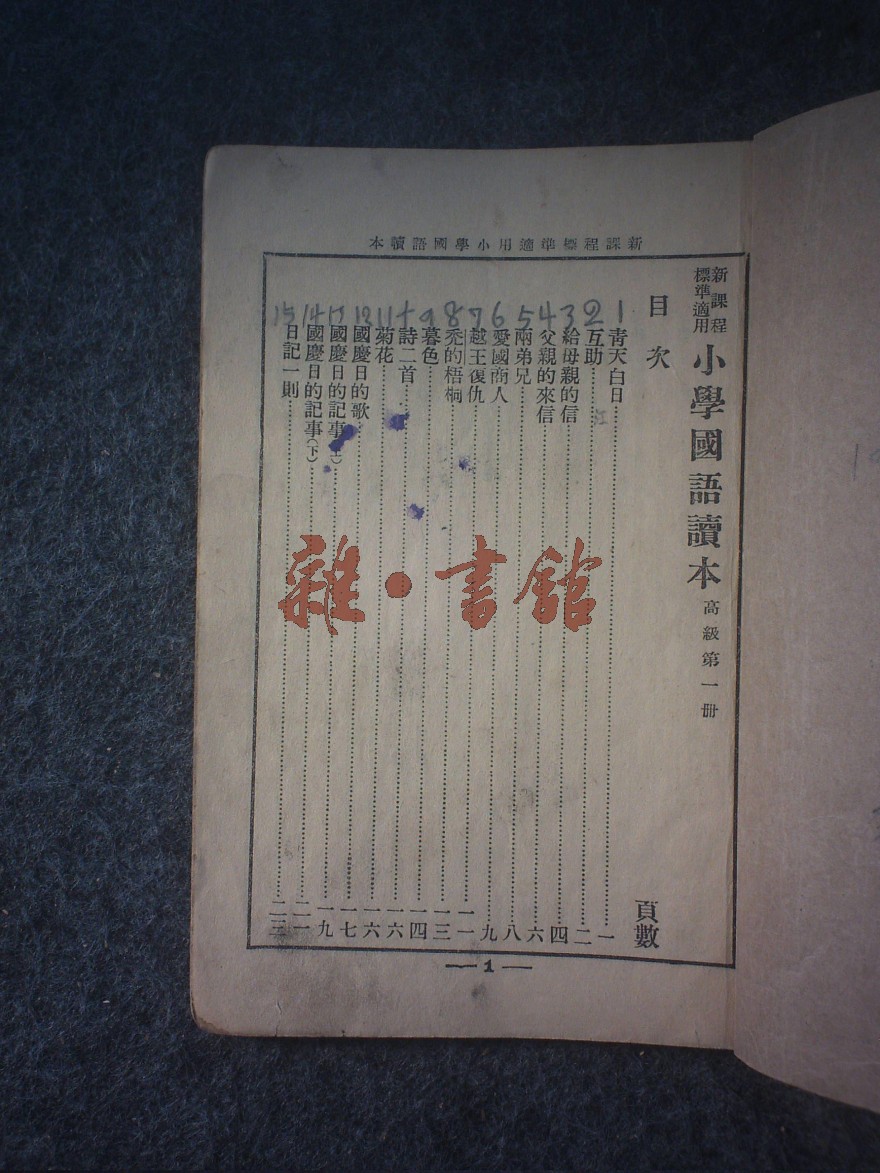 新課程標準適用小學國語讀本
新課程
標準適用
小學國語讀本 高級第一冊
目次 頁數
1 青天白日 一
2 互助 二
江
3 給母親的信 四
4 父親的來信 六
5 兩弟兄 八
6 愛國商人 九
7 越王復仇 一一
8 禿的梧桐 一三
9 暮色 一四
十 詩二首 一六
11 菊花 一六
12 國慶日的歌 一七
13 國慶日的記事(上) 一九
14 國慶日的記事(下) 二一
15 日記一則 二三
— 1 —
雜·書館